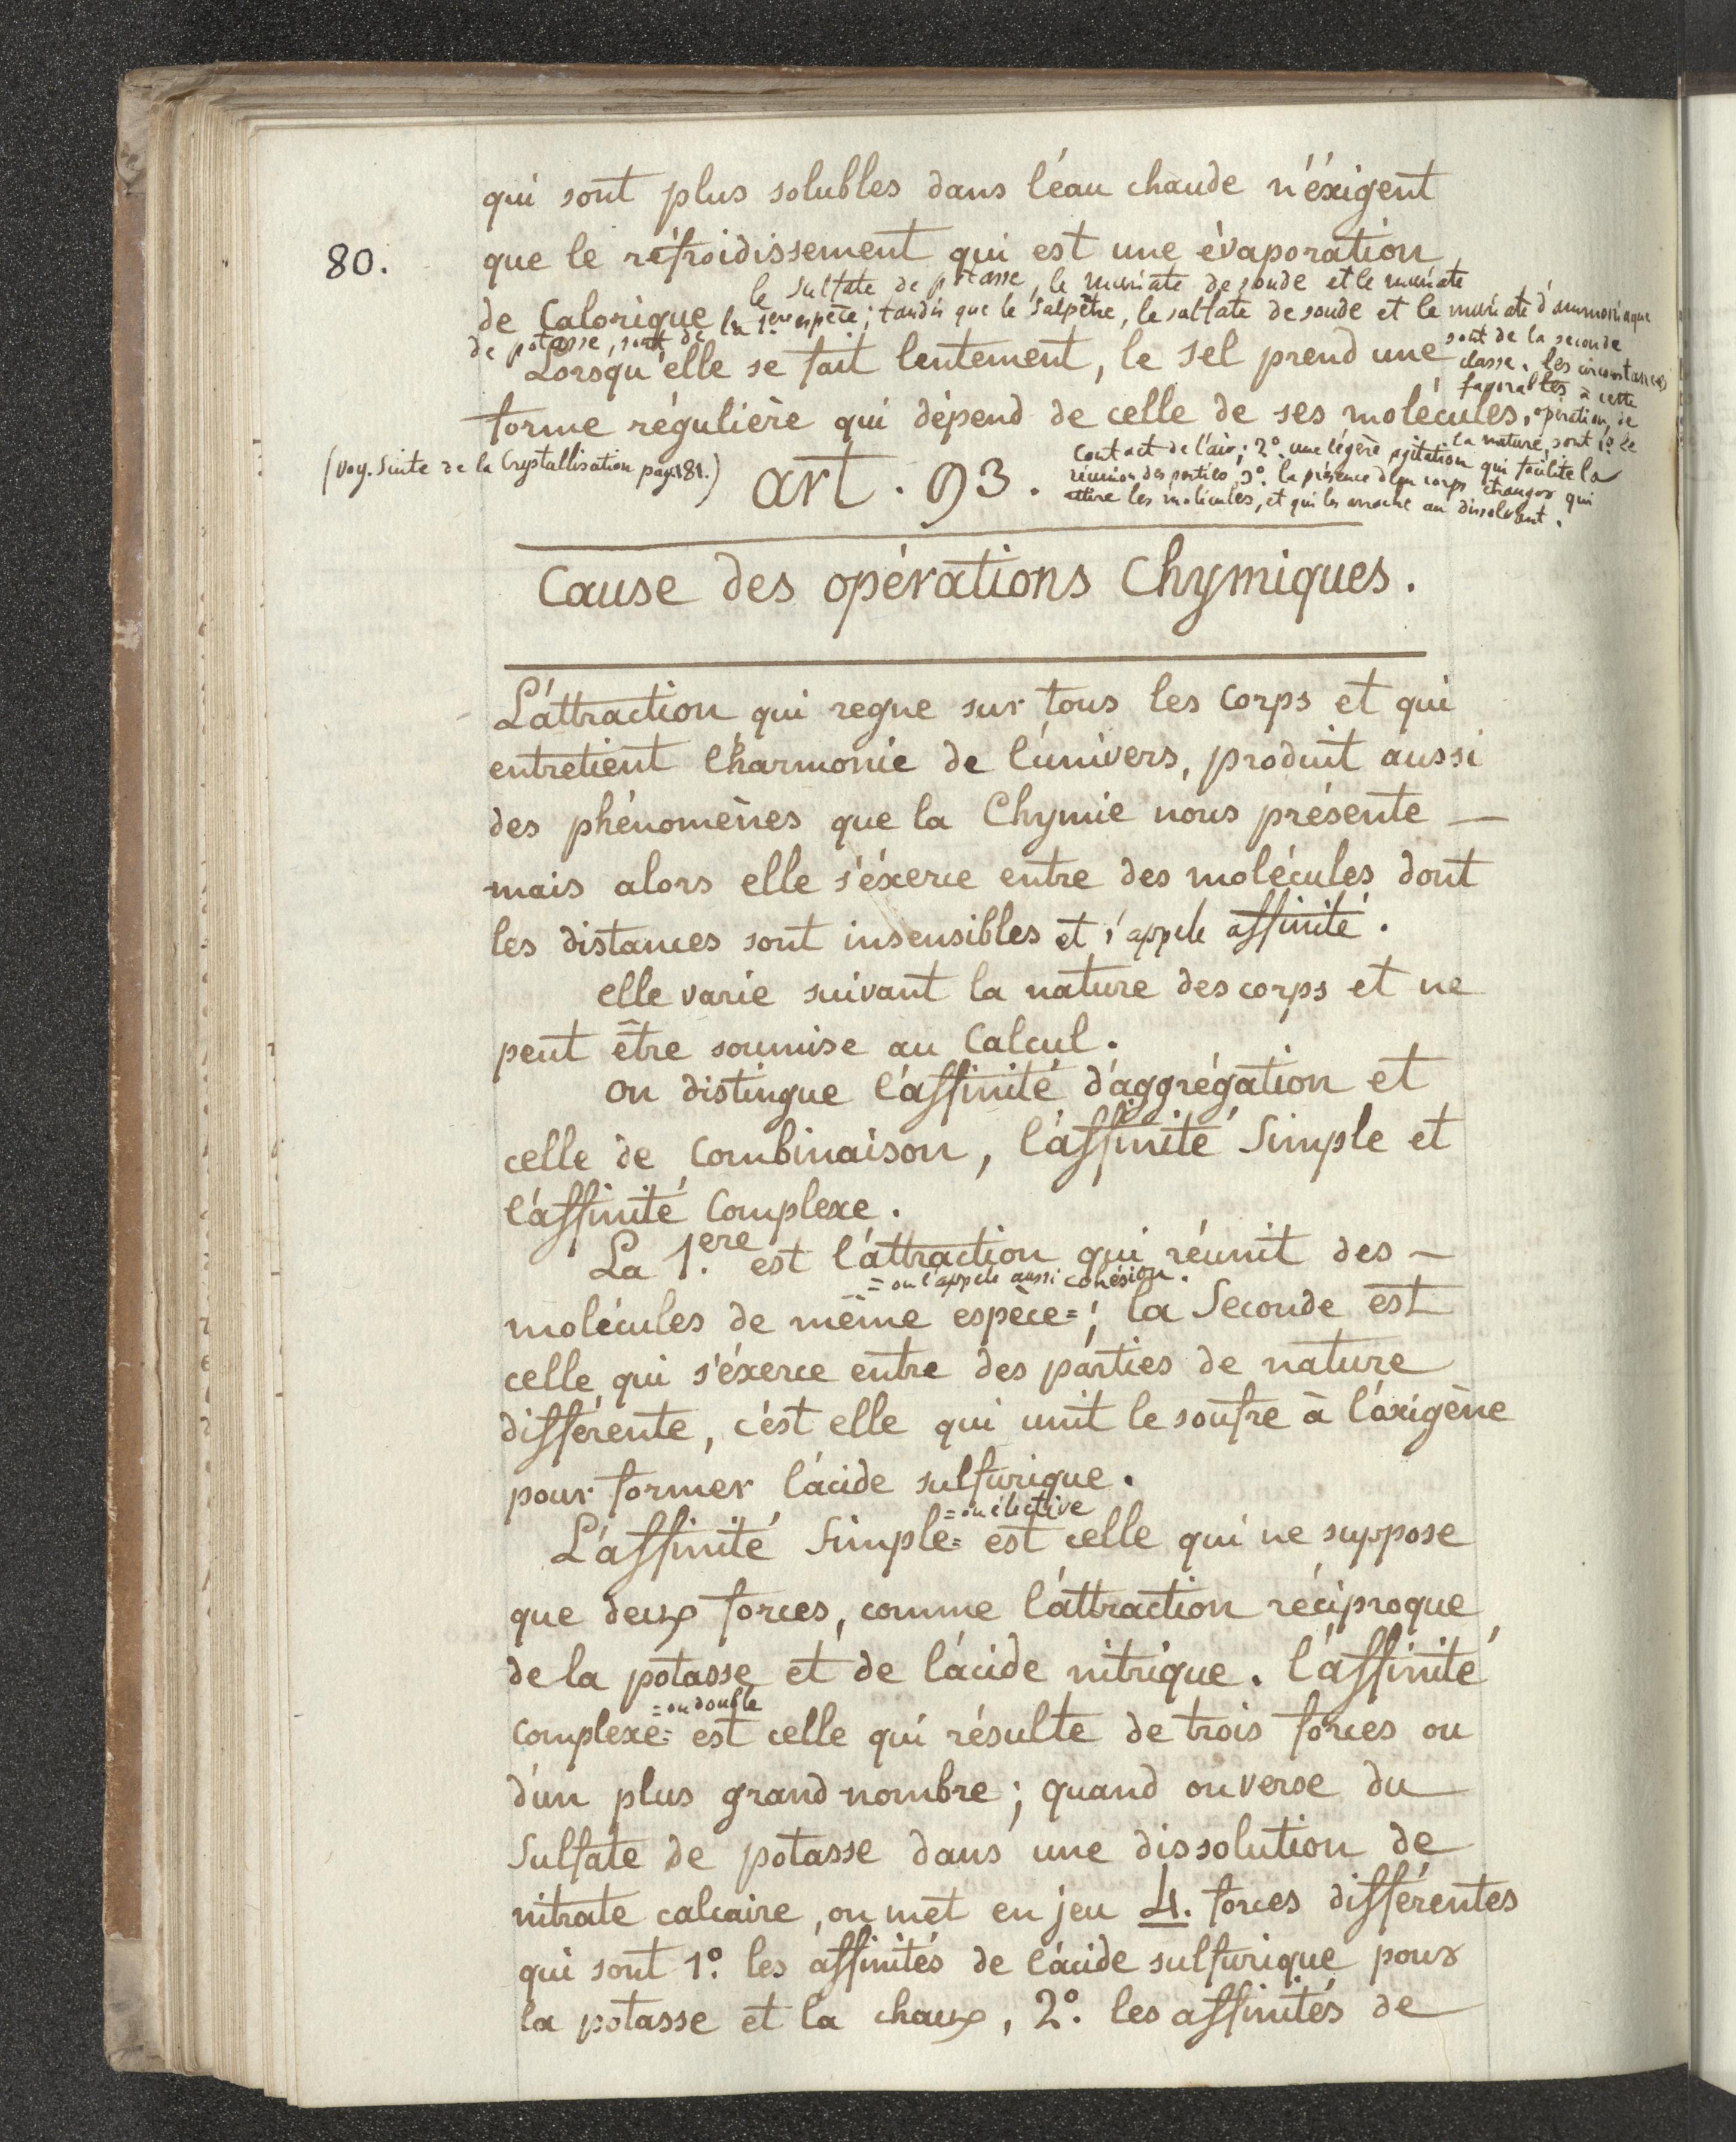 qui sont plus solubles dans l'éau chaude n'éxigent
80.
que le réfroidissement qui est une évaporation
de Calorique
le sulfate de potasse, le muriate de soude et le muriate
de potasse, sont de la 1ere espèce; tandis que le salpêtre, le sulfate de soude et le muriate d'ammoniaque
sont de la seconde
classe. les circonstances
favorables à cette
opération de
la nature, sont 1º. le
contact de l'air; 2º. une légère agitation qui facilite la
réunion des parties, 3º. la présence d'un corps étranger qui
attire les molécules, et qui les arrache au dissolvant.
Lorsqu'elle se fait lentement, le sel prend une
forme régulière qui dépend de celle de ses molécules.
(voy. suite de la Crystallisation pag. 181.)
art. 93.
Cause des opérations Chymiques.
L'attraction qui regne sur tous les Corps et qui
entretient l'harmonie de l'univers, produit aussi
des phénomènes que la Chymie nous présente —
mais alors elle s'éxerce entre des molécules dont
les distances sont insensibles et s'appele affinité.
elle varie suivant la nature des corps et ne
peut être soumise au Calcul.
on distingue l'affinité d'aggrégation et
celle de Combinaison, l'affinité Simple et
l'affinité Complexe.
La 1.ere est l'attraction qui réunit des —
= on l'appele aussi cohésion.
molécules de même espèce=; la Seconde est
celle qui s'éxerce entre des parties de nature
différente, c'est elle qui unit le soufre à l'oxigène
pour former l'acide sulfurique.
= ou élective
L'affinité Simple= est celle qui ne suppose
que deux forces, comme l'attraction réciproque
de la potasse et de l'acide nitrique. l'affinité
= ou double
Complexe= est celle qui résulte de trois forces ou
d'un plus grand nombre; quand on verse du
Sulfate de potasse dans une dissolution de
nitrate calcaire, on met en jeu 4. forces différentes
qui sont 1º. les affinités de l'acide sulfurique pour
la potasse et la chaux, 2º. les affinités de